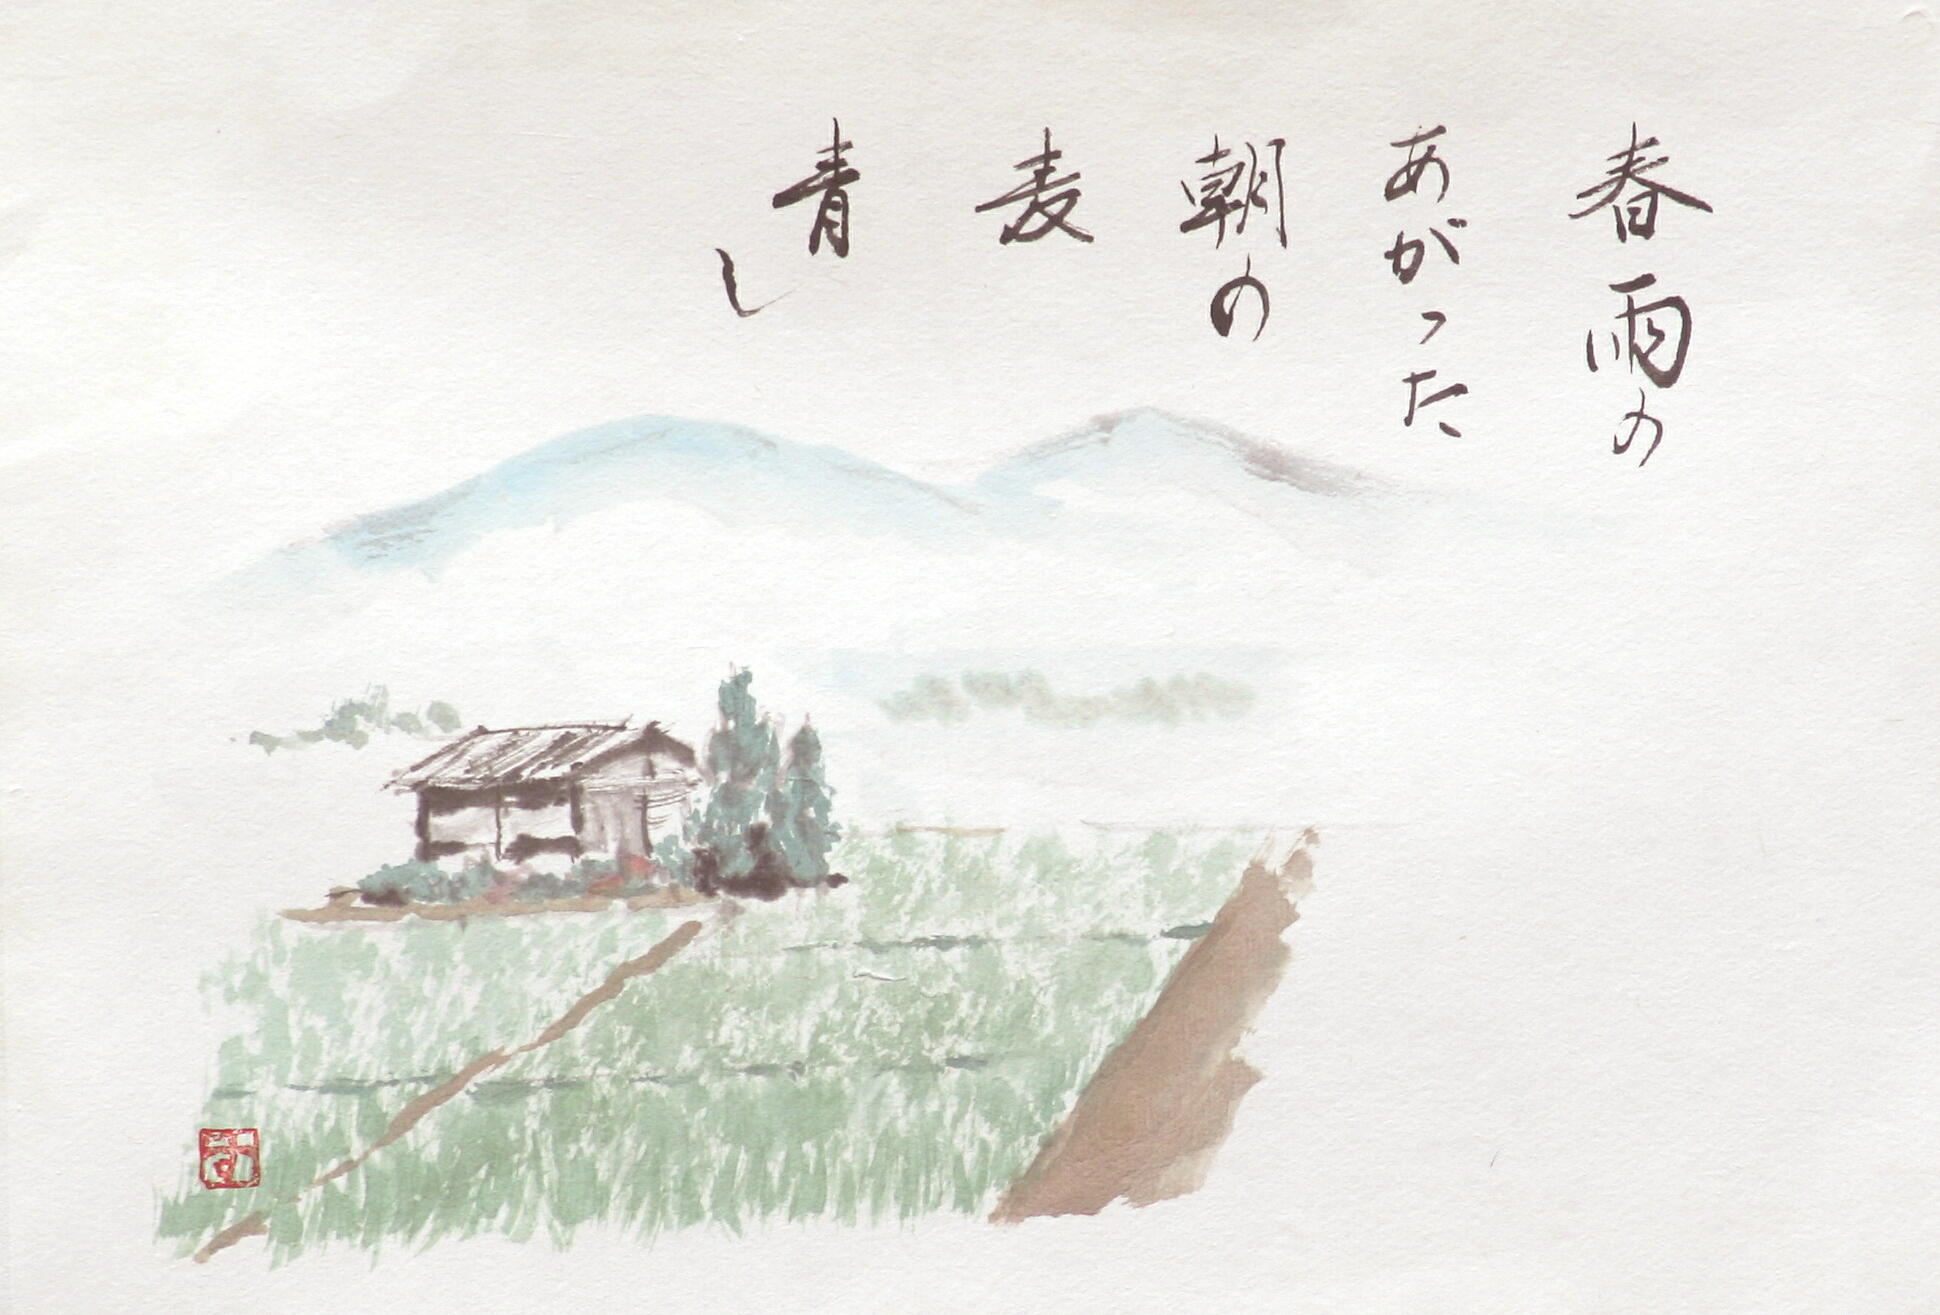 春雨の
あがった
朝の
麦
青し